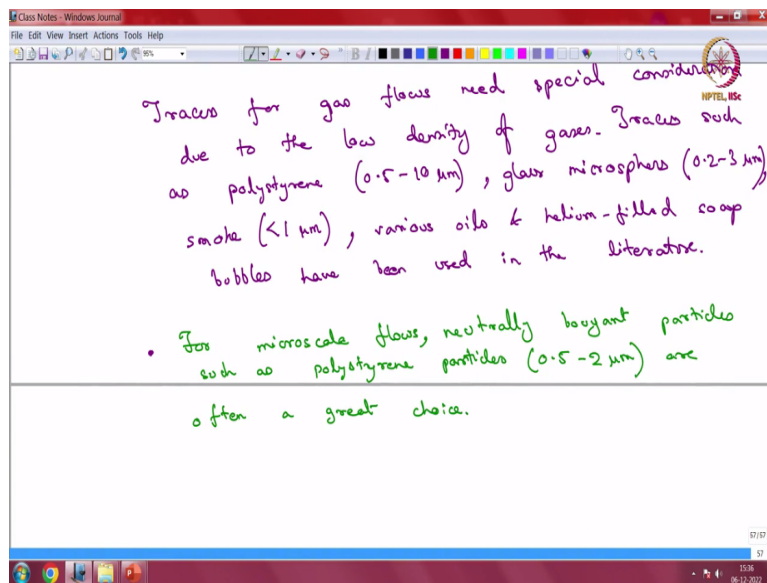 Class Notes - Windows Journal
File Edit View Insert Actions Tools Help
95%
NPTEL, IISc
Tracers for gas flows need special consideration
due to the low density of gases. Tracers such
as polystyrene (0.5-10 μm), glass microsphers (0.2-3 μm),
smoke (<1 μm), various oils & helium-filled soap
bubbles have been used in the literature.
• For microscale flows, neutrally bouyant particles
such as polystyrene particles (0.5-2 μm) are
often a great choice.
57/57
57
15:36
06-12-2022